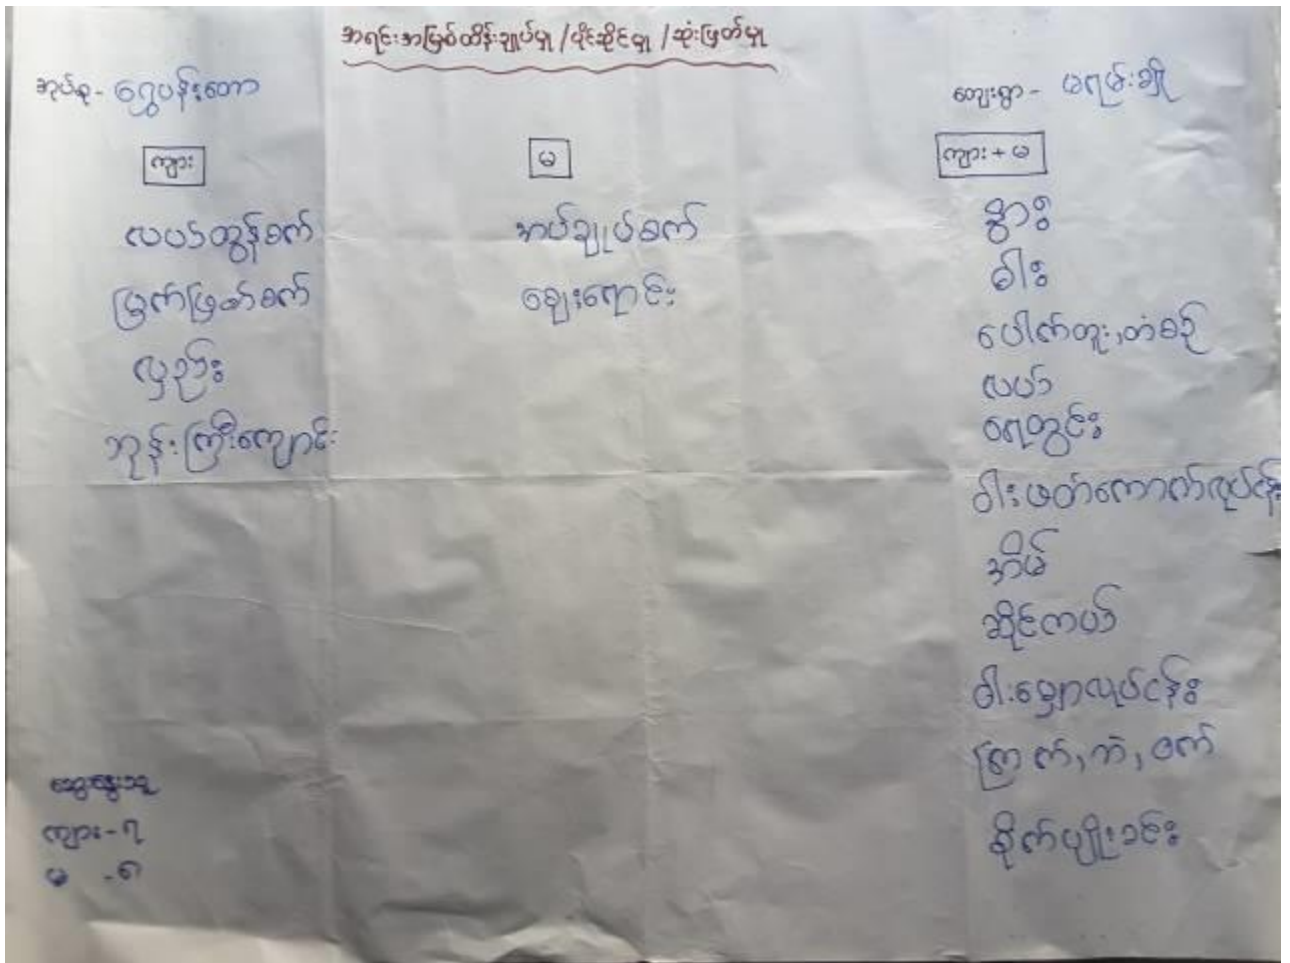 အရင်းအမြစ်ထိန်းချုပ်မှု /ပိုင်ဆိုင်မှု /ဆုံးဖြတ်မှု
အုပ်စု - ရွှေပန်းတော
ကျေးရွာ - မရမ်းချို
ကျား
မ
ကျား + မ
လယ်ထွန်စက်
မြက်ဖြတ်စက်
လှည်း
ဘုန်းကြီးကျောင်း
အပ်ချုပ်စက်
ဈေးရောင်း
နွား
ဓါး
ပေါက်တူး,တံစဉ်
လယ်
ရေတွင်း
ဝါးဖတ်ကောက်လုပ်ငန်း
အိမ်
ဆိုင်ကယ်
ဝါးလုပ်ငန်း
ကြက်,ဘဲ,ဝက်
စိုက်ပျိုးခင်း
ဆွေးနွေးသူ
ကျား - ၇
မ - ၈